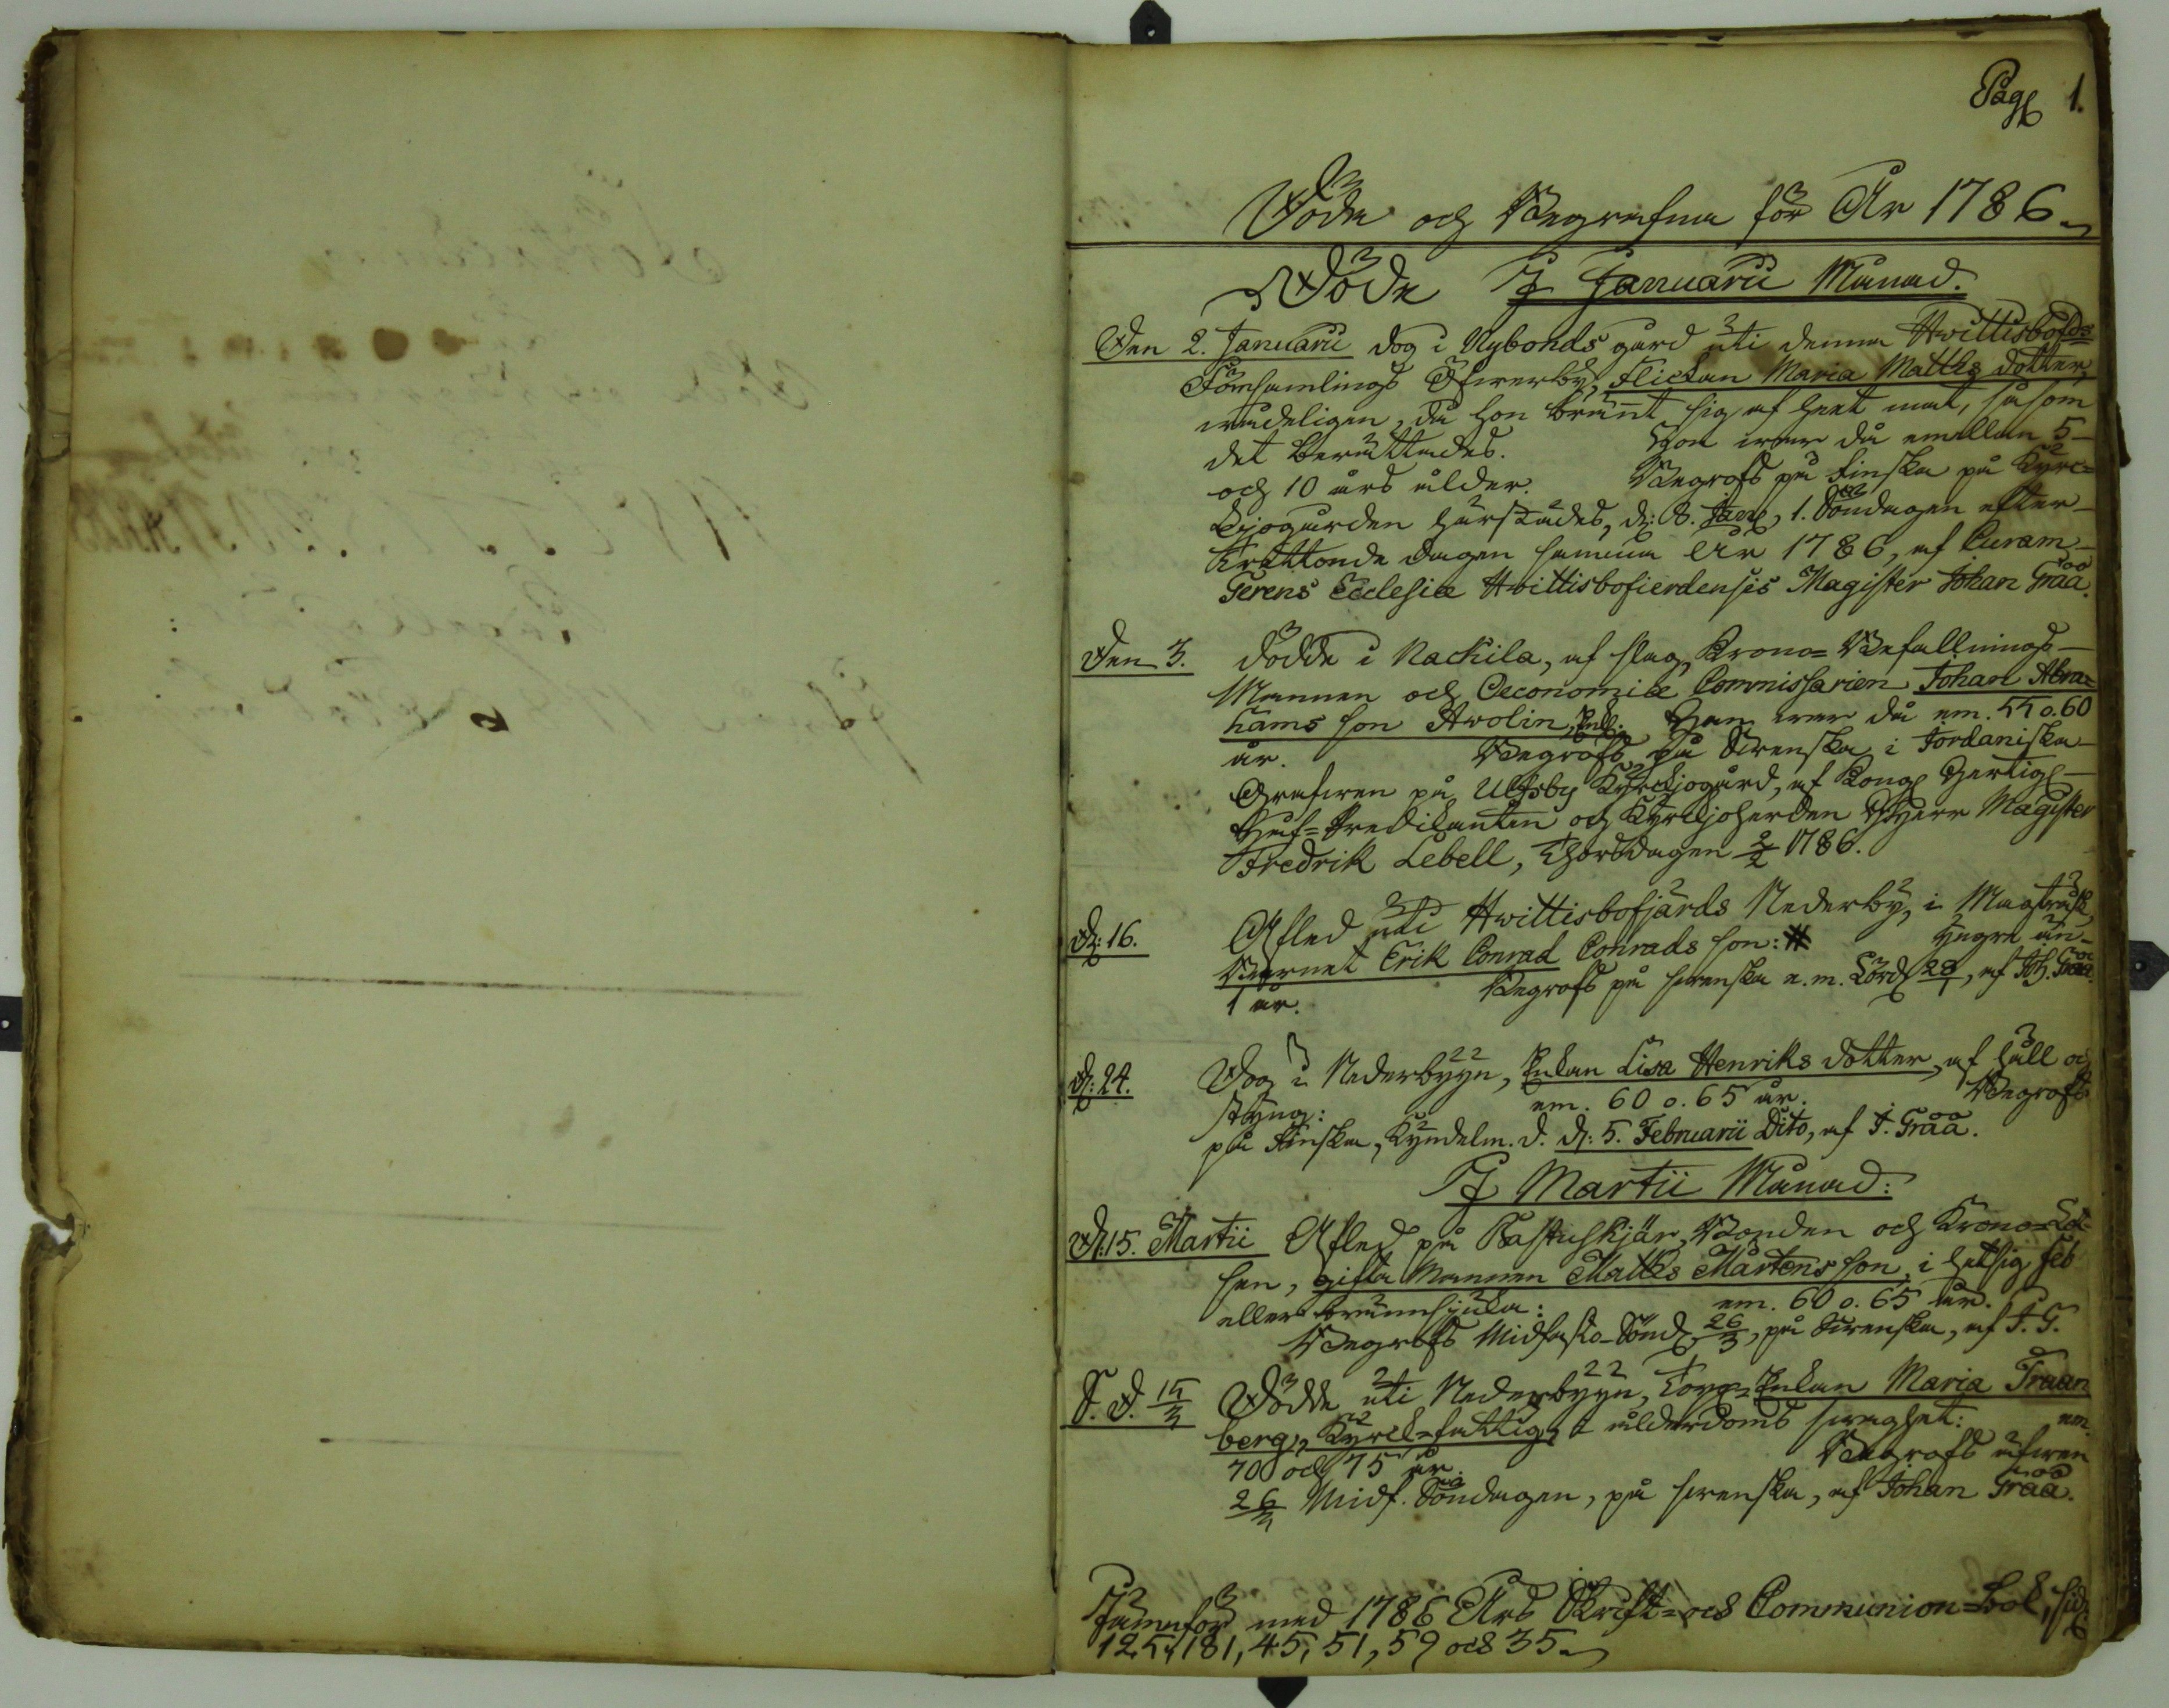 Pag: 1.
Döde och Begrafne för År 1786.
Döde I Januarii Månad.
Den 2. Januarii dog i Nybonds gård uti denna Hvittisbofds
Församlings Öfwerby, Flickan Maria Matths dotter,
wådeligen, då hon bränt sig af heet mat, såsom
det berättades. Hon war då emellan 5
och 10 års ålder. Begrofs på finska på Kyrc-
kjogården härstädes, d: 8. Jan:, 1. Söndagen efter
Trettonde dagen samma År 1786, af Curam
Gerens Ecclesiæ Hvittisbofierdensis Magister Johan Gråå.
Den 3. dödde i Nackila, af slag, Krono-Befallnings-
Mannen och Oeconomiæ Commissarien Johan Abra-
hams son Avolin, Enkl: Han war då em. 55 o. 60
år. Begrofs på Swenska i Jordaniska
Grafwen på Ulfsby Kyrckjogård, af Kongl Hertigl
Huf-Predikanten och Kyrckjoherden Hherr Magister
Fredrik Lebell, Thorsdagen 2/2 1786.
D: 16. Afled uti Hvittisbofjärds Nederby, i
Barnet Erik Conrad Conrads son: # Högre än
1 år. Begrofs på swenska e. m. Lörd: 28/1, af Joh. Gråå.
D: 24. Dog i Nederbyyn, Enkan Lisa Henriks dotter, af håll och
styng: em. 60 o. 65 år. Begrofs
på Finska, Kyndelm. d. d: 5. Februarii Dito, af J. Gråå.
I Martii Månad:
D: 15. Martii Afled på Bastuskjär, Bonden och Krono-Lot-
sen, gifta Mannen Matths Mårtens son, i hetsig feb
eller brännsjuka: em. 60 o. 65 år.
Begrofs Midfasto-Sönd: 26/3, på Swenska, af J. G.
S. D. 15/3 Dödde uti Nederbyyn, Torp-Enkan Maria Traan
berg, Kyrck-fattig, i ålderdoms swaghet: em.
70 och 75 år. Begrofs äfwen
26/3 Midf. Söndagen, på swenska, af Johan Gråå.
Jämnför med 1786 Års Skrift- och Communion-Bok, sid:
125, 181, 45, 51, 59 och 35.